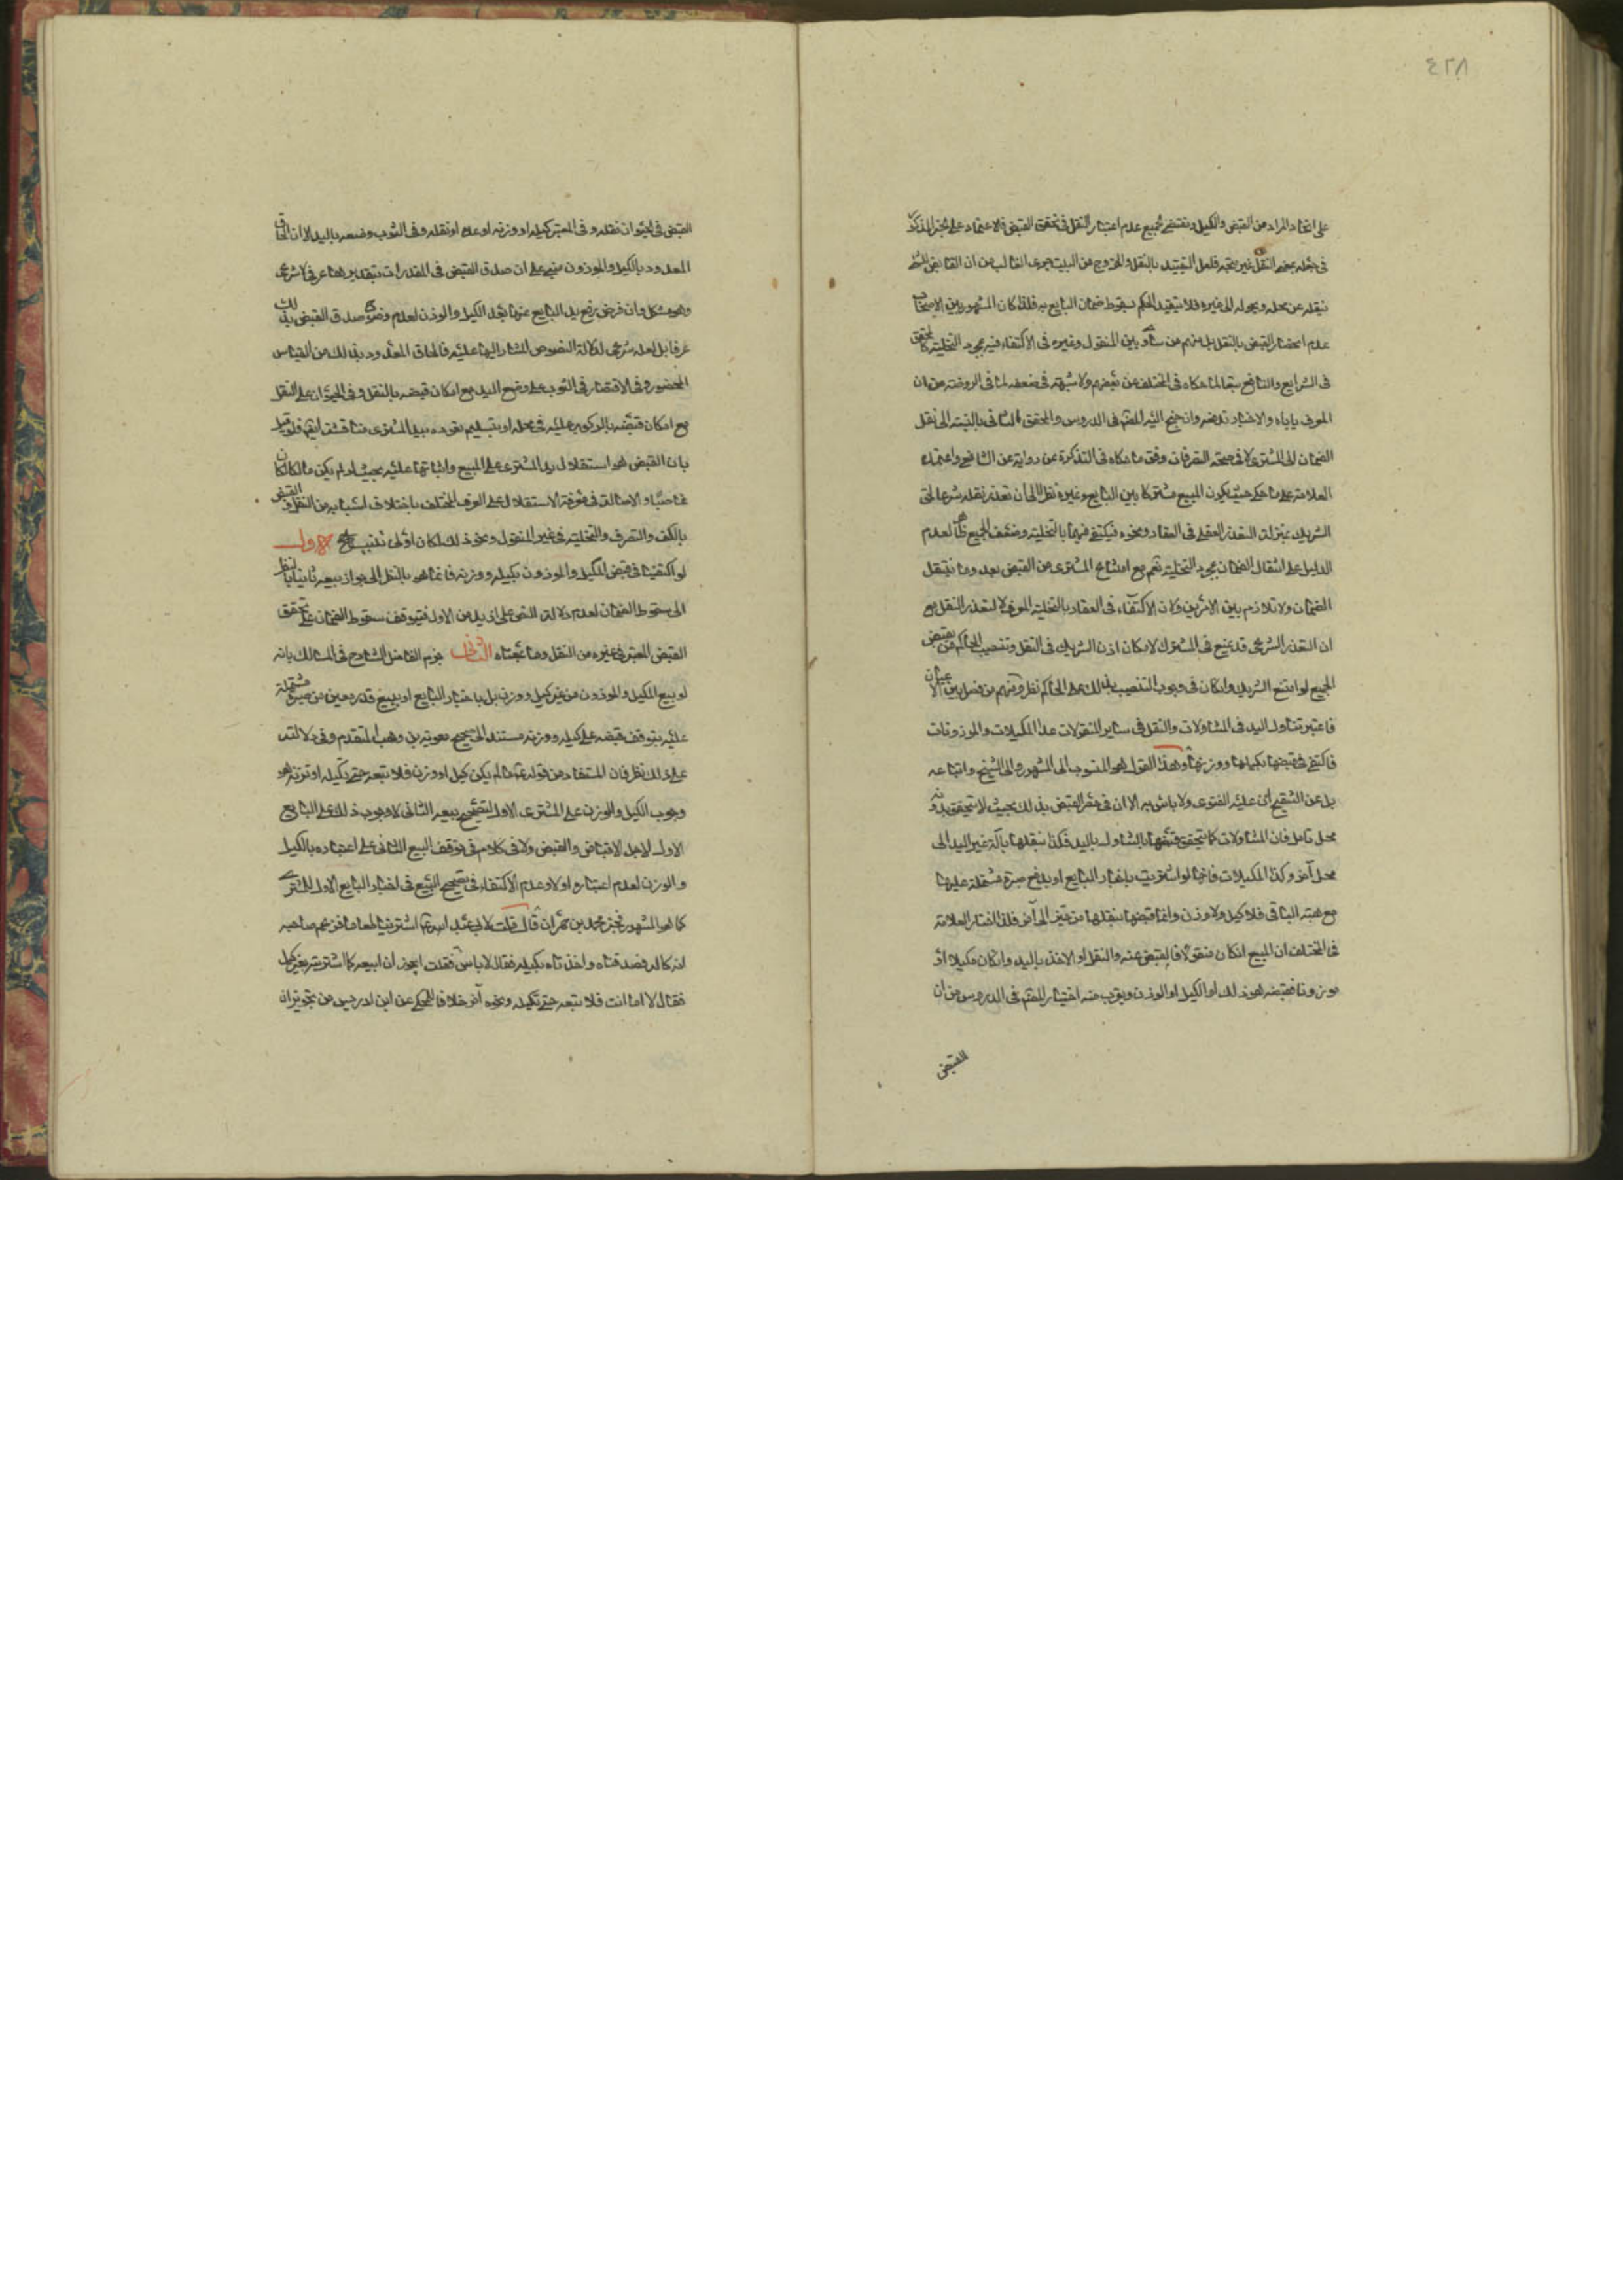 ٤٢٨
على اتحاد المراد من القبض والكيل ومقتضى الجميع عدم اعتبار النقل في تحقق القبض فلا اعتماد على الخبر المذكور
في جعله بمعنى النقل غير متجه فلعل التقييد بالنقل والخروج من البيت جرى الغالب من ان القابض
ينقله عن محله ويحوله الى غيره فلا يتقيد الحكم بسقوط ضمان البايع به فلذا كان المشهور بين الاصحاب
عدم انحصار القبض بالنقل بل منهم من ساوى بين المنقول وغيره في الاكتفاء فيه بمجرد التخلية كالمحقق
في الشرايع والنافع تبعا لما حكاه في المختلف عن بعضهم ولا شبهة في ضعفه لما في الروضة من ان
العرف ياباه والاخبار تدفعه وان جنح اليه المقتصر في الدروس والمحقق الثاني بالنسبة الى نقل
الضمان الى المشتري لا في صحة التصرفات وفق ما حكاه في التذكرة عن رواية عن الشافعي واعتمده
العلامة على ما حكي حيث يكون المبيع مشتركا بين البايع وغيره نظرا الى ان تعذر نقله شرعا لحق
الشريك بمنزلة التعذر العقلي في العقار ونحوه فيكتفى فيهما بالتخلية وضعف الجميع ظاهر لعدم
الدليل على انتقال الضمان بمجرد التخلية نعم مع امتناع المشتري من القبض بعدها ينتقل
الضمان ولا تلازم بين الامرين وكان الاكتفاء في العقار بالتخلية للعرف لا لتعذر النقل مع
ان التعذر الشرعي قد يمنع في المشترك لامكان اذن الشريك في النقل وتنصيب الحاكم من يقبض
الجميع لو امتنع الشريك وان كان في وجوب التنصيب بذلك على الحاكم نظر ومنهم من فصل بين الاعيان
فاعتبر تناول اليد في المتناولات والنقل في ساير المنقولات عدا المكيلات والموزونات
فاكتفى في قبضها بكيلها ووزنها وهذا القول هو المنسوب الى المشهور والى الشيخ واتباعه
بل عن التنقيح ان عليه الفتوى ولا باس به الا ان في حصر القبض بذلك بحيث لا يتحقق بدونه
محل تامل فان المتناولات كما يتحقق قبضها بالتناول باليد فكذا بنقلها بآلة غير اليد الى
محل آخر وكذا المكيلات فانها لو اشتريت باخبار البايع او بدفع صبرة مشتملة عليها
مع هبة الباقي فلا كيل ولا وزن وانما قبضها بنقلها من حيز الى آخر فلذا اختار العلامة
في المختلف ان المبيع ان كان منقولا فالقبض عنه والنقل او الاخذ باليد وان كان مكيلا او
موزونا فقبضه هو ذلك او الكيل او الوزن ويقرب منه اختيار المقتصر في الدروس من ان
القبض
القبض في الحيوان نقله وفي المعتبر كيله او وزنه او عده او نقله وفي الثوب وضعه باليد الا ان الحاق
المعدود بالكيل والموزون مبني على ان صدق القبض في المقدرات بتقديرها عرفي لا شرعي
وهو مشكل وان فرض رفع يد البايع عنها بعد الكيل والوزن لعدم وضوح صدق القبض بذلك
عرفا بل لعله شرعي لدلالة النصوص المشار اليها عليه فالحاق المعدود بذلك من القياس
المحضور وفي الاقتصار في الثوب على وضع اليد مع امكان قبضه بالنقل وفي الحيوان على النقل
مع امكان قبضه بالركوب عليه في محله او بتسليم مقوده بيد المشتري مناقشة ايضا فلو قيل
بان القبض هو استقلال يد المشتري على المبيع واثباتها عليه بحيث لو لم يكن مالكا لكان
غاصبا والاحالة في معرفة الاستقلال على العرف المختلف باختلاف اسبابه من النقل والقبض
بالكف والتصرف والتخلية في غير المنقول ونحو ذلك لكان اولى تذنيب الاول
لو اكتفينا في قبض المكيل والموزون بكيله ووزنه فانما هو بالنظر الى جواز بيعه ثانيا بالنظر
الى سقوط الضمان لعدم دلالة النص على ازيد من الاول فيتوقف سقوط الضمان على تحقق
القبض المعتبر في غيره من النقل وما بمعناه الثاني جزم الفاضل الشارح في المسالك بانه
لو بيع المكيل والموزون من غير كيل ووزن بل باخبار البايع او ببيع قدر معين من صبرة مشتملة
عليه يتوقف قبضه على كيله ووزنه مستندا الى صحيح معوية بن وهب المتقدم وفي دلالته
على ذلك نظر فان المستفاد من قوله ع ما لم يكن كيل او وزن فلا تبعه حتى تكيله او تزنه هو
وجوب الكيل والوزن على المشتري الاول لتصحيح بيعه الثاني لا وجوب ذلك على البايع
الاول لاجل الاقباض والقبض ولا في كلام في توقف البيع الثاني على اعتباره بالكيل
والوزن لعدم اعتباره اولا وعدم الاكتفاء في تصحيح البيع في اخبار البايع الاول للمشتري
كما هو المشهور لخبر محمد بن حمران قال قلت لابي عبد الله ع اشترينا طعاما فزعم صاحبه
انه كاله فصدقناه واخذناه بكيله فقال لا باس فقلت ايجوز ان ابيعه كما اشتريته بغير كيل
فقال لا اما انت فلا تبعه حتى تكيله ونحوه آخر خلافا للمحكي عن ابن ادريس من تجويز ان